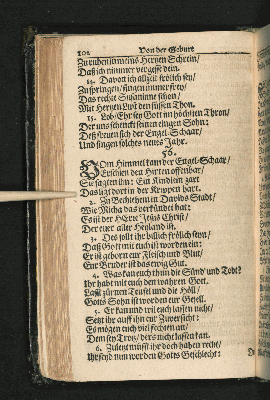 102 Von der Geburt
Zu ruhen in meins Hertzen Schrein/
Daß ich nimmer vergesse dein.
14. Davon ich allzeit frölich sey/
Zu springen/ singen immer frey/
Das rechte Susaninne schon/
Mit Hertzen Lust den süssen Thon.
15. Lob/ Ehr sey Gott im höchsten Thron/
Der uns schenckt seinen einigen Sohn:
Deß freuen sich der Engel Schaar/
Und singen solches neues Jahr.
56.
VOm Himmel kam der Engel Schaar/
Erschien den Hirten offenbar/
Sie sagten ihn: Ein Kindlein zart
Das ligt dort in der Krippen hart.
2. Zu Bethlehem in Davids Stadt/
Wie Micha das verkündet hat:
Es ist der HErre JEsus Christ/
Der euer aller Heyland ist.
3. Des sollt ihr billich frölich seyn/
Daß Gott mit euch ist worden ein:
Er ist geborn eur Fleisch und Blut/
Eur Bruder ist das ewig Gut.
4. Was kan euch thun die Sünd und Todt?
Ihr habt mit euch den wahren Gott.
Laßt zürnen Teufel und die Höll/
Gotts Sohn ist worden eur Gesell.
5. Er kan und wil euch lassen nicht/
Setzt ihr auff ihn eur Zuversicht:
Es mögen euch viel fechten an/
Dem sey Trotz/ ders nicht lassen kan.
6. Zuletzt müßt ihr doch haben recht/
Ihr seyd nun worden Gotts Geschlecht: